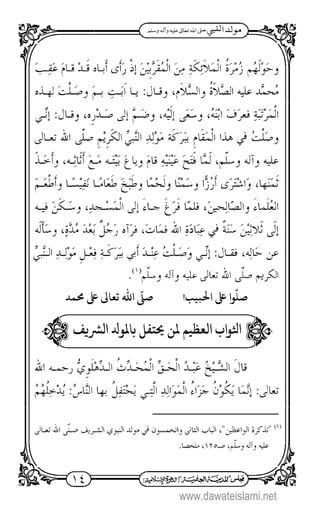 مولد النبي صلى الله تعالى عليه وآله وسلم
وَحَوْلَهُمْ زُمْرَةُ الْمَلَائِكَةِ مِنَ الْمُقَرَّبِيْنَ إِذْ رَأَى أَبـاه قَـدْ قـامَ عَقِـبَ
مُحمَّدٍ عليه الصَّلَاةُ والسَّلَامِ، وقـال: يـا أَبَـتِ بِـمَ وَصَـلْتَ لهـذه
الْمَرْتَبَةِ فعَرَفَ ابْنُه، وَسَعَى إِلَيْهِ، وَضَمَّ إِلى صَدْرِهِ، وقال: إِنِّـي
وَصَلْتُ في هذا الْمَقَامِ بَرَكَةَ مَوْلِدِ النَّبِيِّ الْكَرِيْمِ صلّى الله تعـالى
عليه وآله وسلّم، ثُمَّ لَمَّا فَتَحَ عَيْنَيْهِ قامَ وباعَ بَيْتَـهُ مَـعَ أَثَاثِـه، وَأَخَـذَ
ثَمَنَها، وَاشْتَرَى أَرُزًّا وَسَمْنًا وَلَحْمًا وَطَبَخَ طَعَامًـا نَفِيْسًـا وَأَطْعَـمَ
الْعُلَماءَ والصَّالِحينَ، فلمّا فَرَغَ جـاءَ إِلى الْمَسْـجِدِ، وَسَـكَنَ فيـه
إِلى ثَلَاثِيْنَ سَنَةً في عِبَادَةِ الله فمَاتَ، فرآه رَجُلٌ بَعْدَ مُـدَّةٍ، وَسَأَلَهُ
عن حَالِهِ، فقـال: إِنّـي وَصَـلْتُ عِنْـدَ أَبِي بَرَكَـةَ فِعْـلِ مَوْلِـدِ النَّبـيِّ
الكريم صلّى الله تعالى عليه وآله وسلّم(١).
صلُّوا على الحبيب! صلّى الله تعالى على محمد
الثواب العظيم لمن يحتفل بالمولد الشريف
قَالَ الشَّـيْخُ عَبْـدُ الْحَـقِّ الْمُحَـدِّثُ الـدِّهْلَوِيُّ رحمـه الله
تعالى: إِنَّمَا يَكُوْنُ جَزَاءُ الْمَوَالِدِ الَّتِـي يَحْتَفِلُ بها النَّاسُ: يُدْخِلُهُمُ
(١) "تذكرة الواعظين"، الباب الثاني والخمسون في مولد النبوي الشريف صلّى الله تعـالى
عليه وآله وسلّم، صـ١٢٥، ملخصا.
١٤
www.dawateislami.net